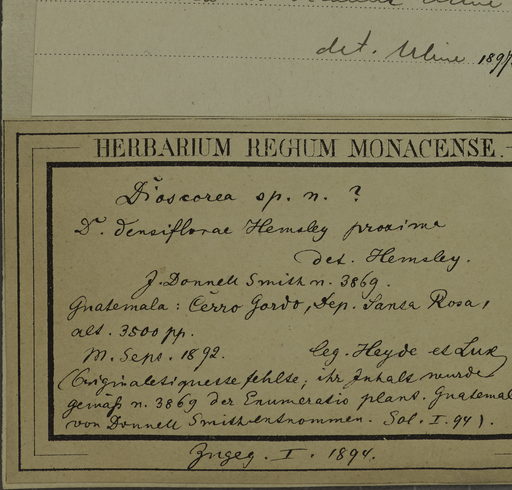 det. Uline 1897
HERBARIUM REGIUM MONACENSE.
Dioscorea sp. n. ?
D. densiflorae Hemsley proxima
det. Hemsley.
J. Donnell Smith n. 3869.
Guatemala: Cerro Gordo, Dep. Santa Rosa,
alt. 3500 pp.
M. Sept. 1892. leg. Heyde et Lux
(Originaletiquette fehlte; ihr Inhalt wurde
gemäß n. 3869 der Enumeratio plant. Guatemal
von Donnell Smith entnommen. Sol. I. 94).
Zngeg. I. 1894.